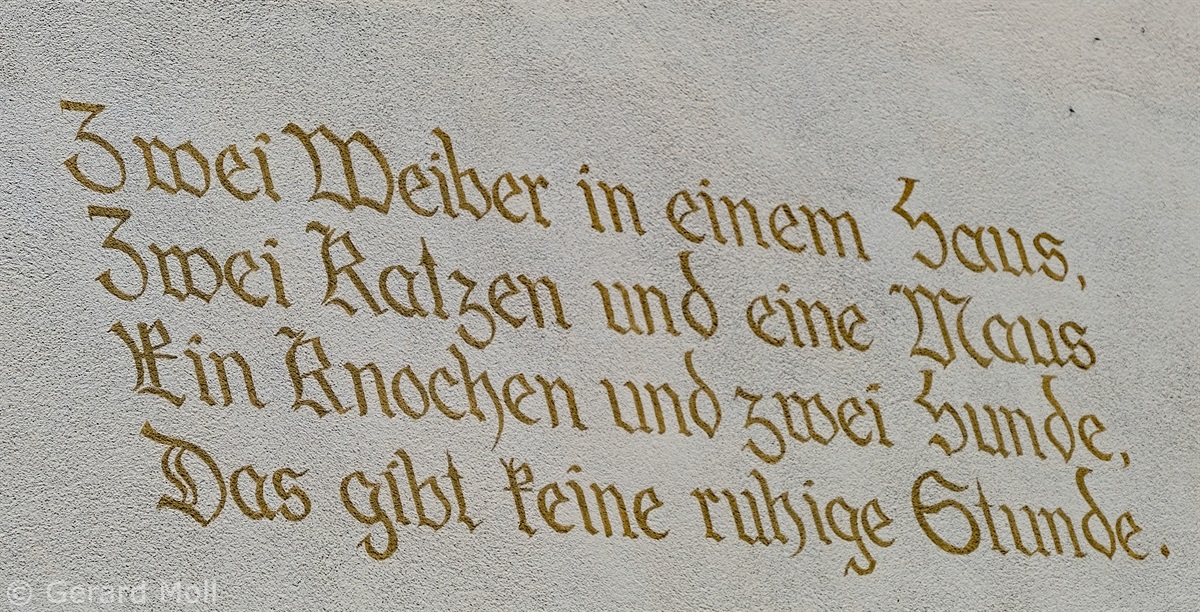 Zwei Weiber in einem Haus,
Zwei Katzen und eine Maus
Ein Knochen und zwei Hunde,
Das gibt keine ruhige Stunde.
© Gerard Moll